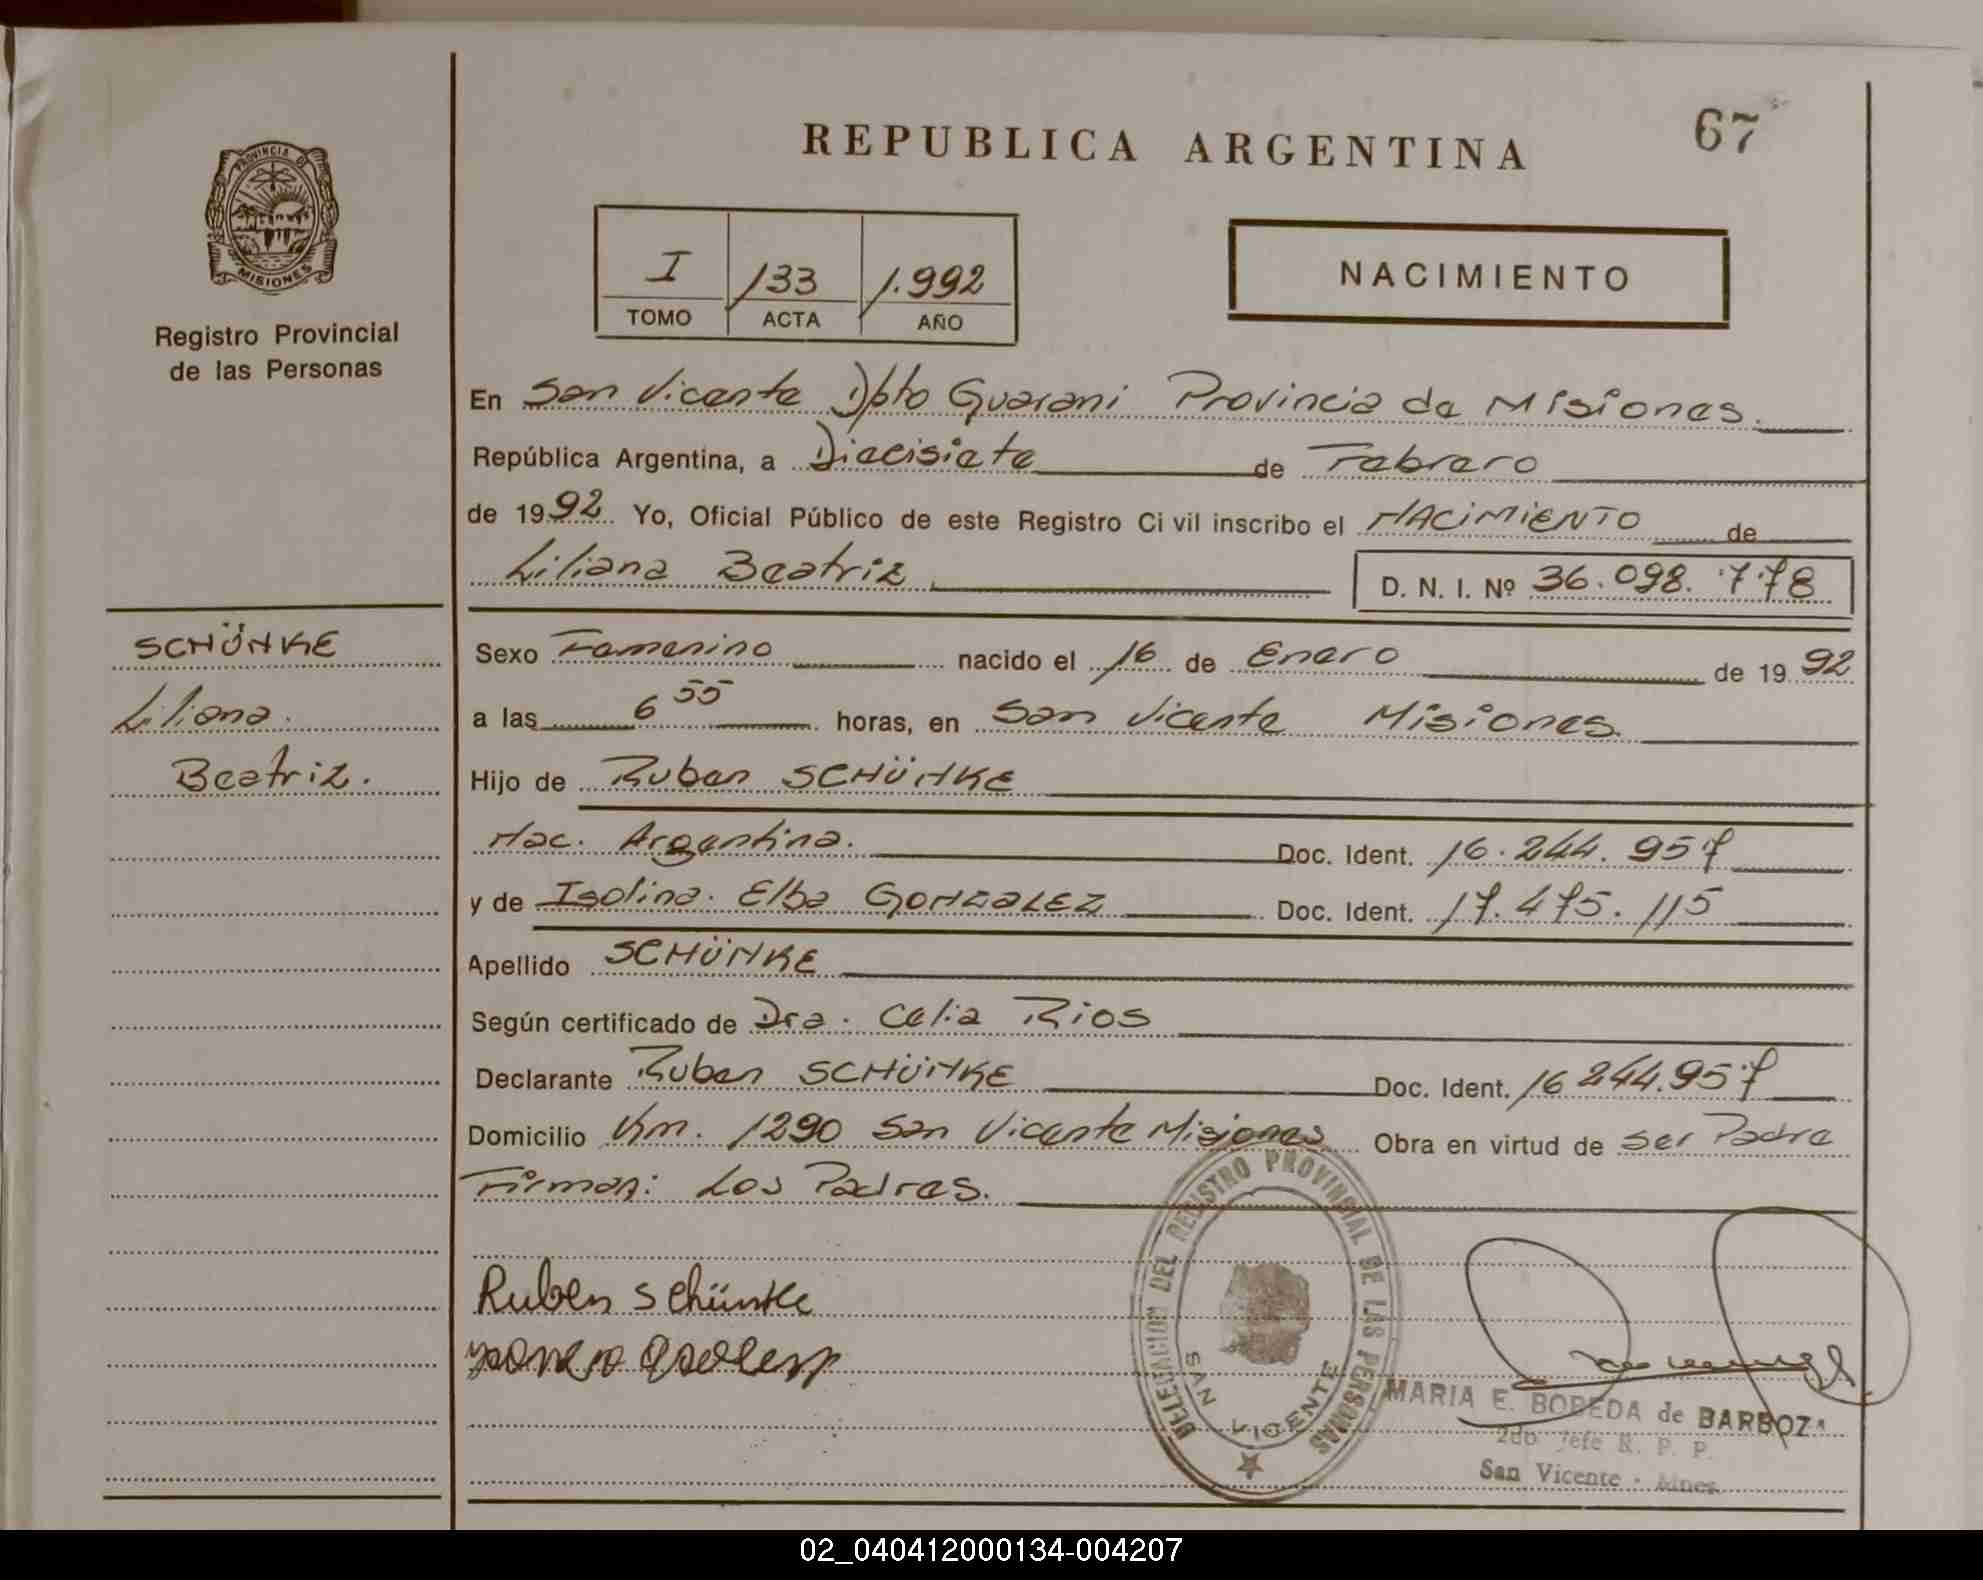 REPUBLICA ARGENTINA
67
PROVINCIA DE
MISIONES
Registro Provincial
de las Personas
I /133 1.992
TOMO ACTA AÑO
NACIMIENTO
En San Vicente Dpto Guarani Provincia de Misiones.
República Argentina, a Diecisiete de Febrero
de 1992 Yo, Oficial Público de este Registro Ci vil inscribo el NACIMIENTO de
Liliana Beatriz D. N. I. Nº 36.098.778
SCHÜNKE
Liliana.
Beatriz.
Sexo Femenino nacido el 16 de Enero de 1992
a las 6 55 horas, en San Vicente Misiones.
Hijo de Ruben SCHÜNKE
Nac. Argentina. Doc. Ident. 16.244.957
y de Isolina. Elba GONZALEZ Doc. Ident. 17.475.115
Apellido SCHÜNKE
Según certificado de Dra. Celia Rios
Declarante Ruben SCHÜNKE Doc. Ident. 16 244.957
Domicilio Km. 1290 San Vicente Misiones Obra en virtud de ser Padre
Firman: Los Padres.
Ruben Schünke
DELEGACION DEL REGISTRO PROVINCIAL DE LAS PERSONAS
SAN VICENTE
MARIA E. BOBEDA de BARBOZA
2do Jefe R. P. P.
San Vicente - Mnes.
02_040412000134-004207